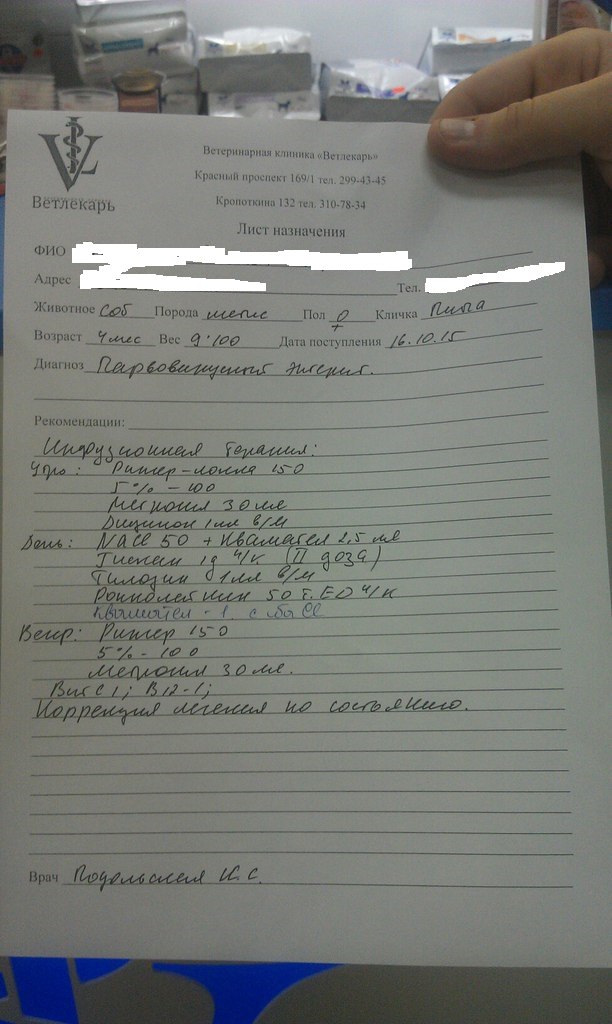 Ветеринарная клиника «Ветлекарь»
Красный проспект 169/1 тел. 299-43-45
Кропоткина 132 тел. 310-78-34
Ветлекарь
Лист назначения
ФИО
Адрес Тел.
Животное Соб Порода метис Пол ♀ Кличка
Возраст 4 мес Вес 9·100 Дата поступления 16.10.15
Диагноз Парвовирусный энтерит.
Рекомендации:
Инфузионная терапия:
Утро: Рингер-локка 150
5% - 100
Метрогил 30 мл
Дицинон 1 мл в/м
День: NaCl 50 + Квамател 2,5 мл
1д п/к (II доза)
Тилозин 1 мл в/м
Ронколейкин 50 т. ЕД п/к
Квамател - 1
Вечер: Рингер 150
5% - 100
Метрогил 30 мл.
Вит С 1; В12-1;
Коррекция лечения по состоянию.
Врач Подольская К. С.